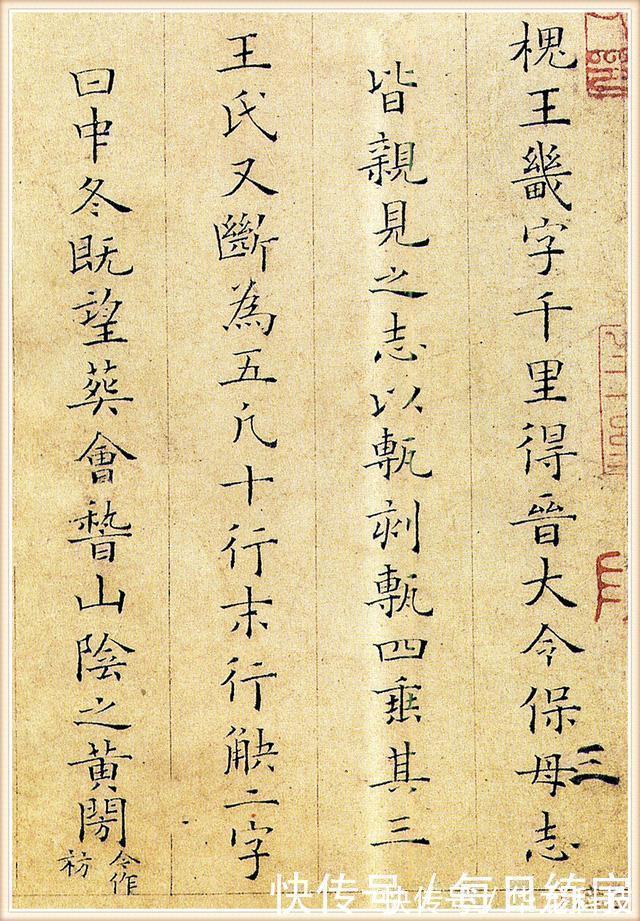 槐王畿字千里得晉大令保母志
三
皆親見之志以甎刻甎四垂其三
王氏又斷為五凡十行末行觖二字
曰中冬既望葬會稽山陰之黃閍
令作
祊
快传号/每日练字